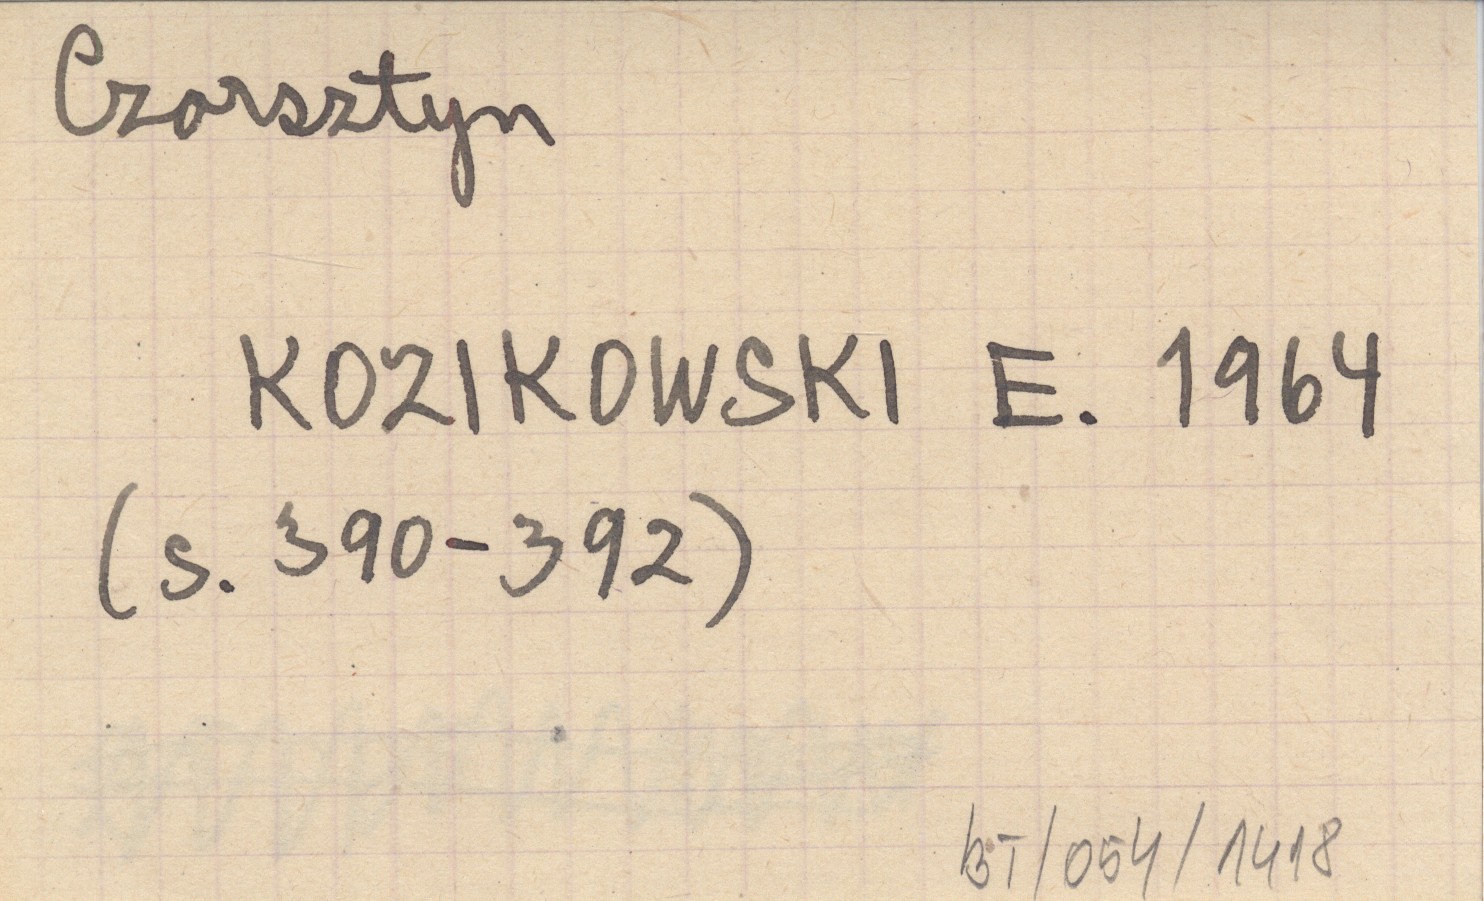 Czorsztyn
KOZIKOWSKI E. 1964
(s. 390-392)
BT/054/1418